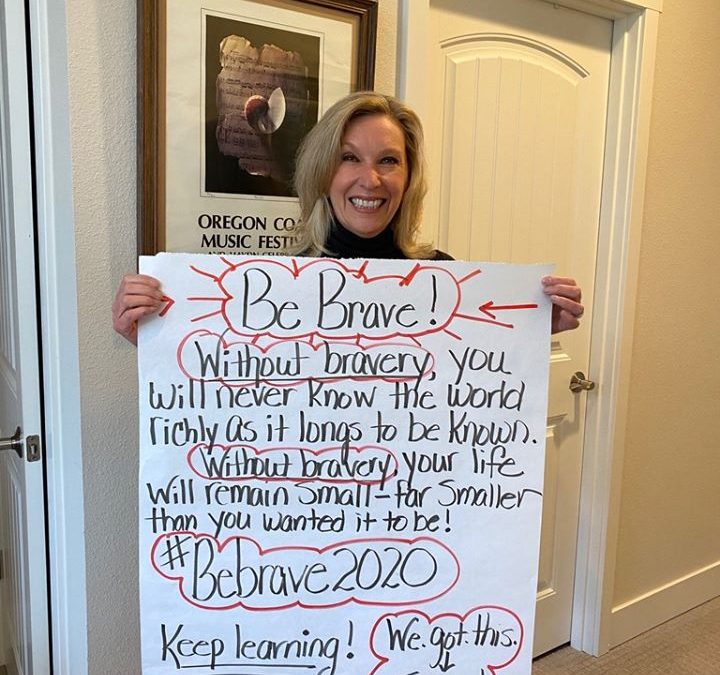 OREGON CO
MUSIC FESTI
Be Brave!
Without bravery, you
will never know the world
richly as it longs to be known.
Without bravery, your life
will remain small - far smaller
than you wanted it to be!
#Bebrave2020
Keep learning! We.got.this.